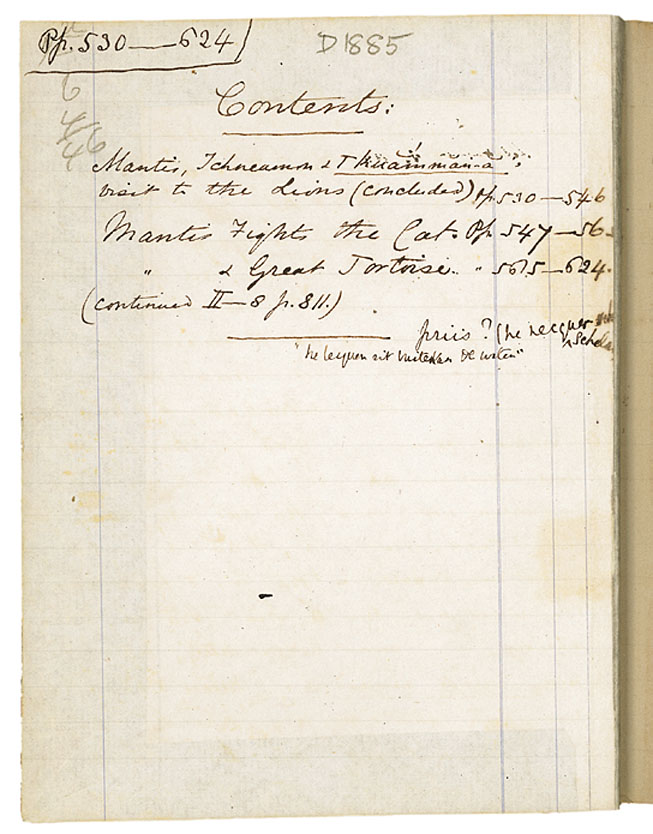 Pp. 530—624
D1885
Contents:
Mantis, Ichneumon & Ikuammana's
visit to the Lions (concluded) pp. 530—546
Mantis Fights the Cat. Pp. 547—56
" & Great Tortoise.. " 565—624.
(continued II—8 p. 811.)
priis? (he
"he lequen zit buitekan de